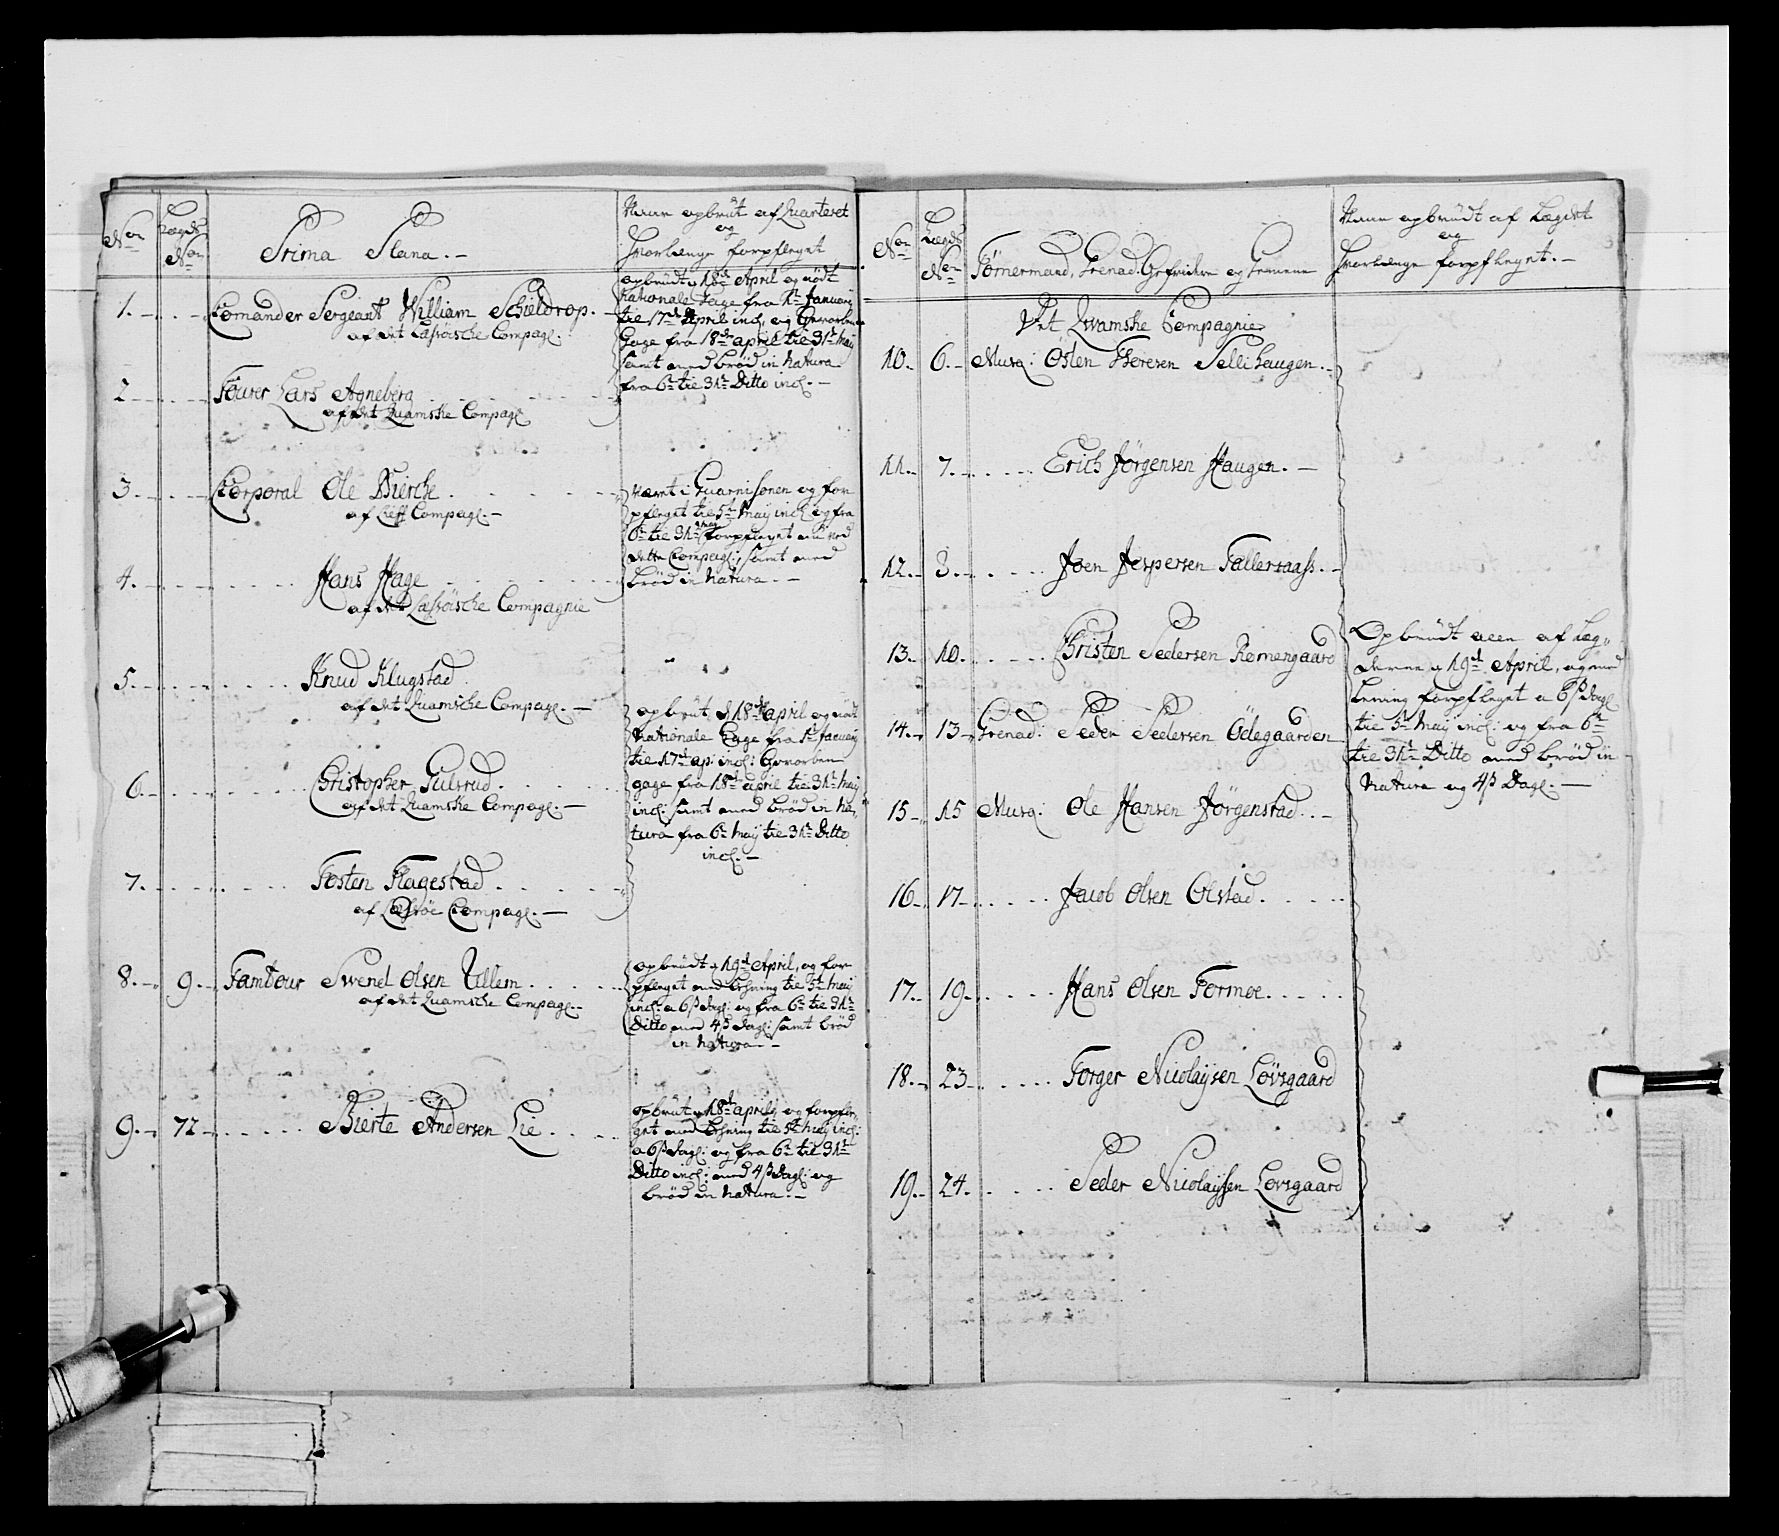 Non
Lægds Non
Prima Plana. -
Naar opbrüt af Quarteret
og
hvorlænge forpfleyet
1. - Comander Sergeant William Schieldrop. -
af det Læssöische Compagl.
opbrüt d 18de April og nödt
Nationale Gage fra 1te January
til 17de April incl. og Gevorben
Gage fra 18de april til 31te Maÿ
samt med bröd in Natura
fra 6te til 31te Ditto incl. -
2 - Fourer Lars Agneberg
af det Quamske Compagl
3 - Corporal Ole Bierche
af Liff Compagl. -
været i Guarnisonen og for-
pfleyet til 5te Maÿ incl og fra
6te til 31te Maÿ forpfleyet ved
dette Compagl: samt med
bröd in Natura. -
4. - Hans Hage
af det Læssöische Compagnie
5. - Knud Klugstad
af det Quamsche Compagl. -
opbrüt d 18de april og nödt
Nationale Gage fra 1te January
til 17de ap: incl: Gevorben
gage fra 18de april til 31te Maÿ
incl: samt med bröd in Na-
tura fra 6te Maÿ til 31te Ditto
incl. -
6. - Christopher Gulsrud
af det Quamske Compagl. -
7. - Tosten Flagestad
af Læssöe Compagl. -
8. - 9. - Tambour Swend Olsen Ullem
af det Quamsche Compagl. -
opbrüdt d 19de April, og for-
pfleyet med Lehning til 5te Maÿ
incl: a 6 ß dagl: og fra 6te til 31te
Ditto med 4 ß dagl: samt bröd
in Natura. -
9. - 72 - Bierte Andersen Lie
opbrüt d 18de april og forpfle-
get med Lehning til 5te Maÿ incl:
a 6 ß dagl: og fra 6te til 31te
Ditto incl: med 4 ß dagl: og
bröd in Natura. -
Non
Lægds Non
Tömermænd, Grenad. Gefreidere og Gemeene
Naar opbrüdt af Lægdet
og
hvorlænge forpfleyet. -
Det Qwamske Compagnie
10. 6. - Musq: Östen Iversen Sellihaugen. -
11. 7. Erich Jörgensen Haugen. -
12. 8. Joen Jespersen Fallersaass. -
13. 10. Christen Pedersen Romengaard
Opbrüdt af Læg-
derne d 19de April, og med
Lening forpfleyet a 6 ß dagl
til 5te Maÿ incl: og fra 6te
til 31te Ditto med bröd in
Natura og 4 ß Dagl. -
14. 13 - Grenad: Peder Pedersen Ödegaarden
15 - 15 Musq: Ole Hansen Jörgenstad. -
16 - 17 - Jacob Olsen Olstad
17. 19 Hans Olsen Formoe
18. 23 - Torger Nicolaÿsen Lövsgaard
19. 24. Peder Nicolaÿsen Lovsgaard